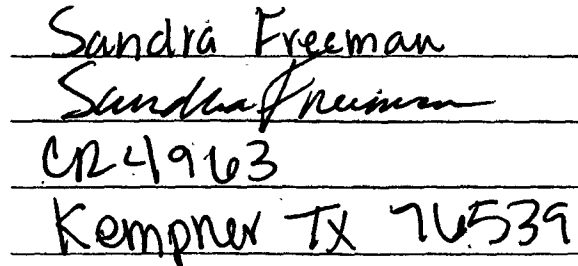 Sandra Freeman
Sandra Freeman
CR 4963
Kempner TX 76539